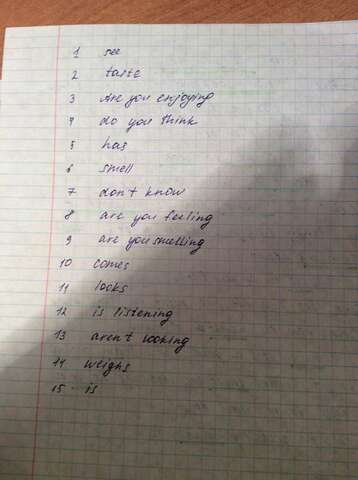 1 see
2 taste
3 Are you enjoying
4 do you think
5 has
6 smell
7 don't know
8 are you feeling
9 are you smelling
10 comes
11 looks
12 is listening
13 aren't looking
14 weighs
15 is